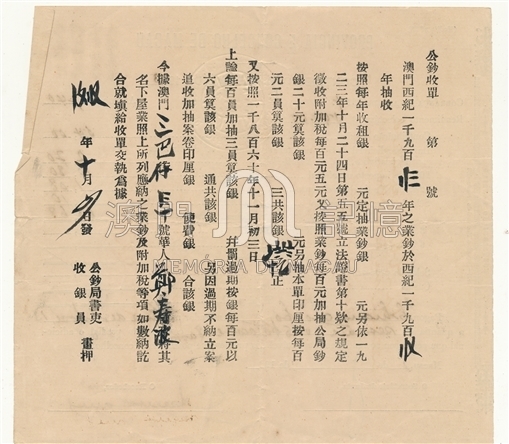 公鈔收單 第 號
澳門西紀一千九百 年之業鈔於西紀一千九百
年抽收
按照每年收租銀 元定抽業鈔銀 元另依一九
二三年十月二十四日第五五號立法證書第十欵之規定
徵收附加稅每百元五元又按照業鈔每百元加抽公局鈔
銀二十元箕該銀 元另抽本單印厘按每百
元二員箕該銀 三共該銀 正
又按照一千八百六十七年十一月初三日
上諭每百員加抽三員箕該銀 幷罰過期按銀每百元以
六員箕該銀 通共該銀 另因過期不納立案
追收加抽案卷印厘銀 使費銀 合該銀
今據澳門三巴仔 號華人 將其
名下屋業照上所列應納之業鈔及附加稅等項如數納訖
合就塡給收單交執爲據
年十月 日發
公鈔局書吏
收銀員 畫押
澳門記憶
MEMÓRIA DE MACAU